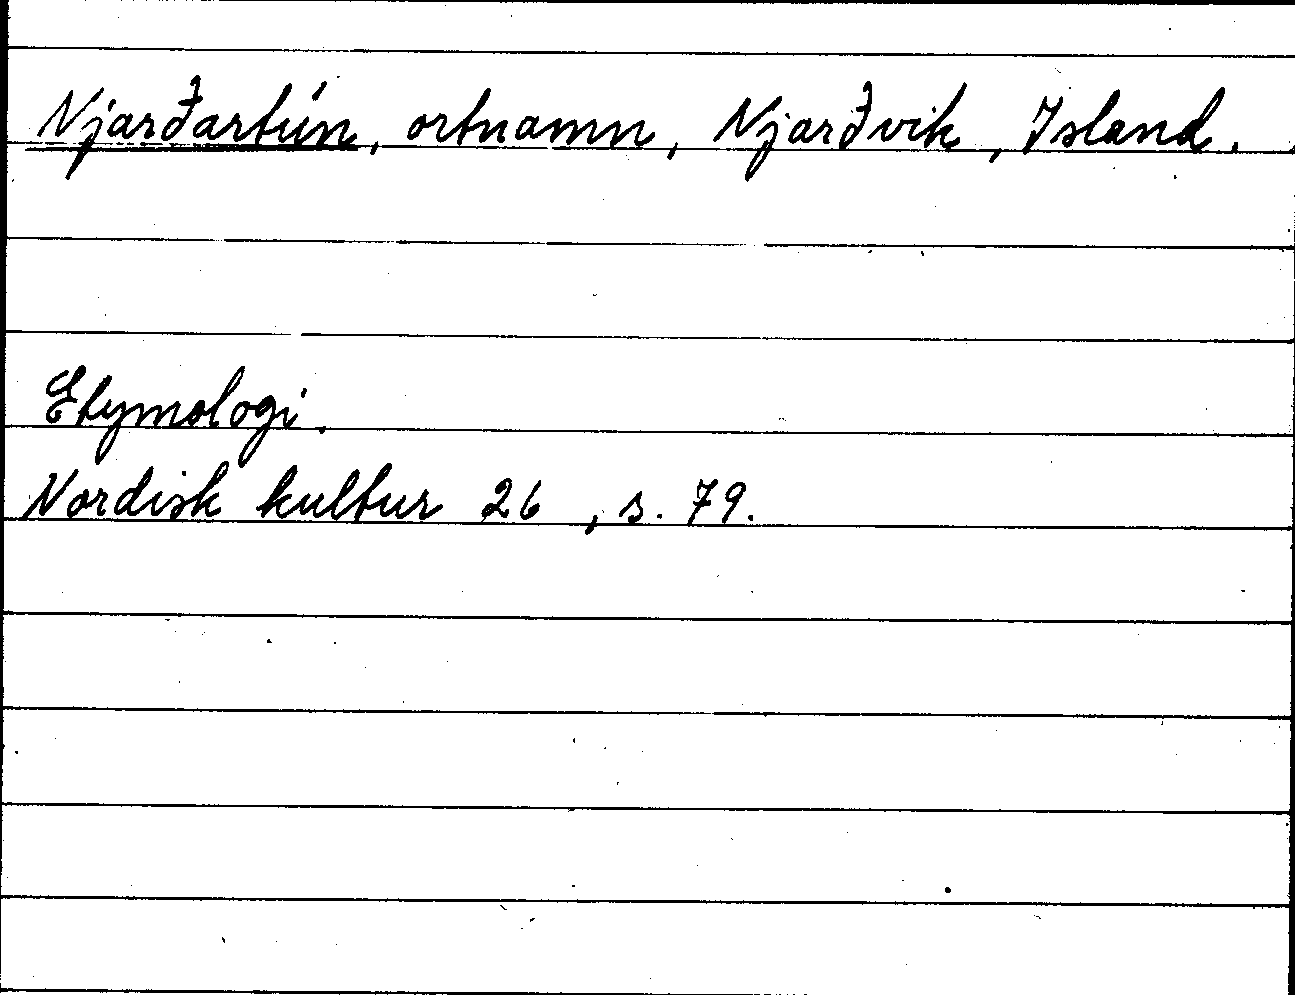 Njarðartún, ortnamn, Njarðvik, Island.
Etymologi.
Nordisk kultur 26, s. 79.